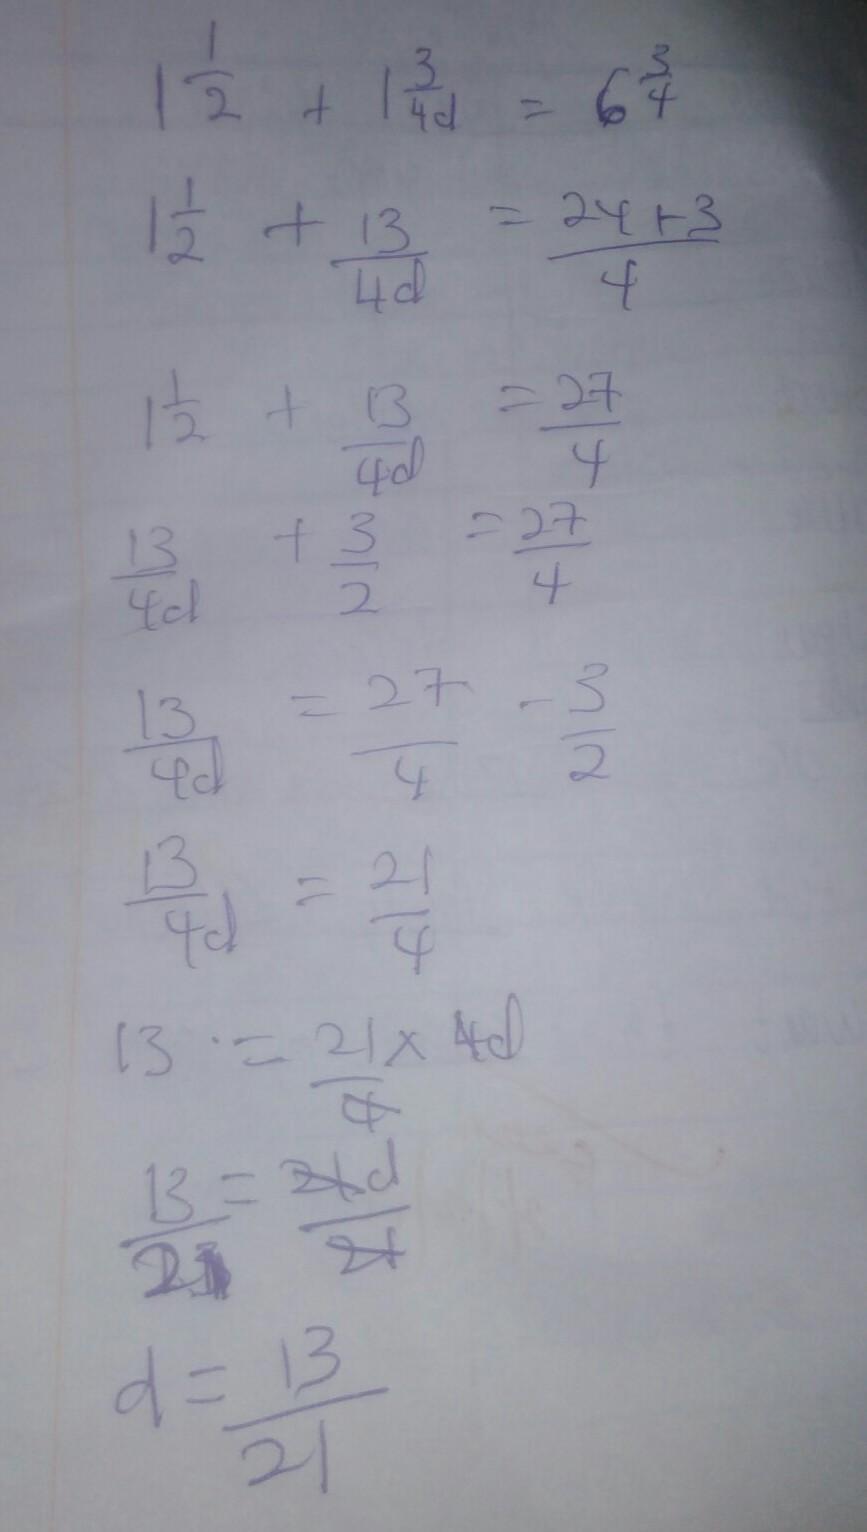 1 1/2 + 1 3/4d = 6 3/4
1 1/2 + 13/4d = (24+3)/4
1 1/2 + 13/4d = 27/4
13/4d + 3/2 = 27/4
13/4d = 27/4 - 3/2
13/4d = 21/4
13 = 21/4 × 4d
13/21 = 21d/21
d = 13/21